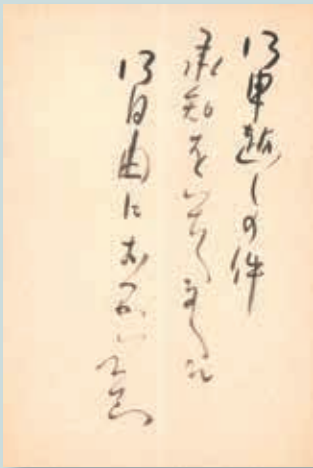 御申越しの件
承知をいたしました
御自由にお い下さい